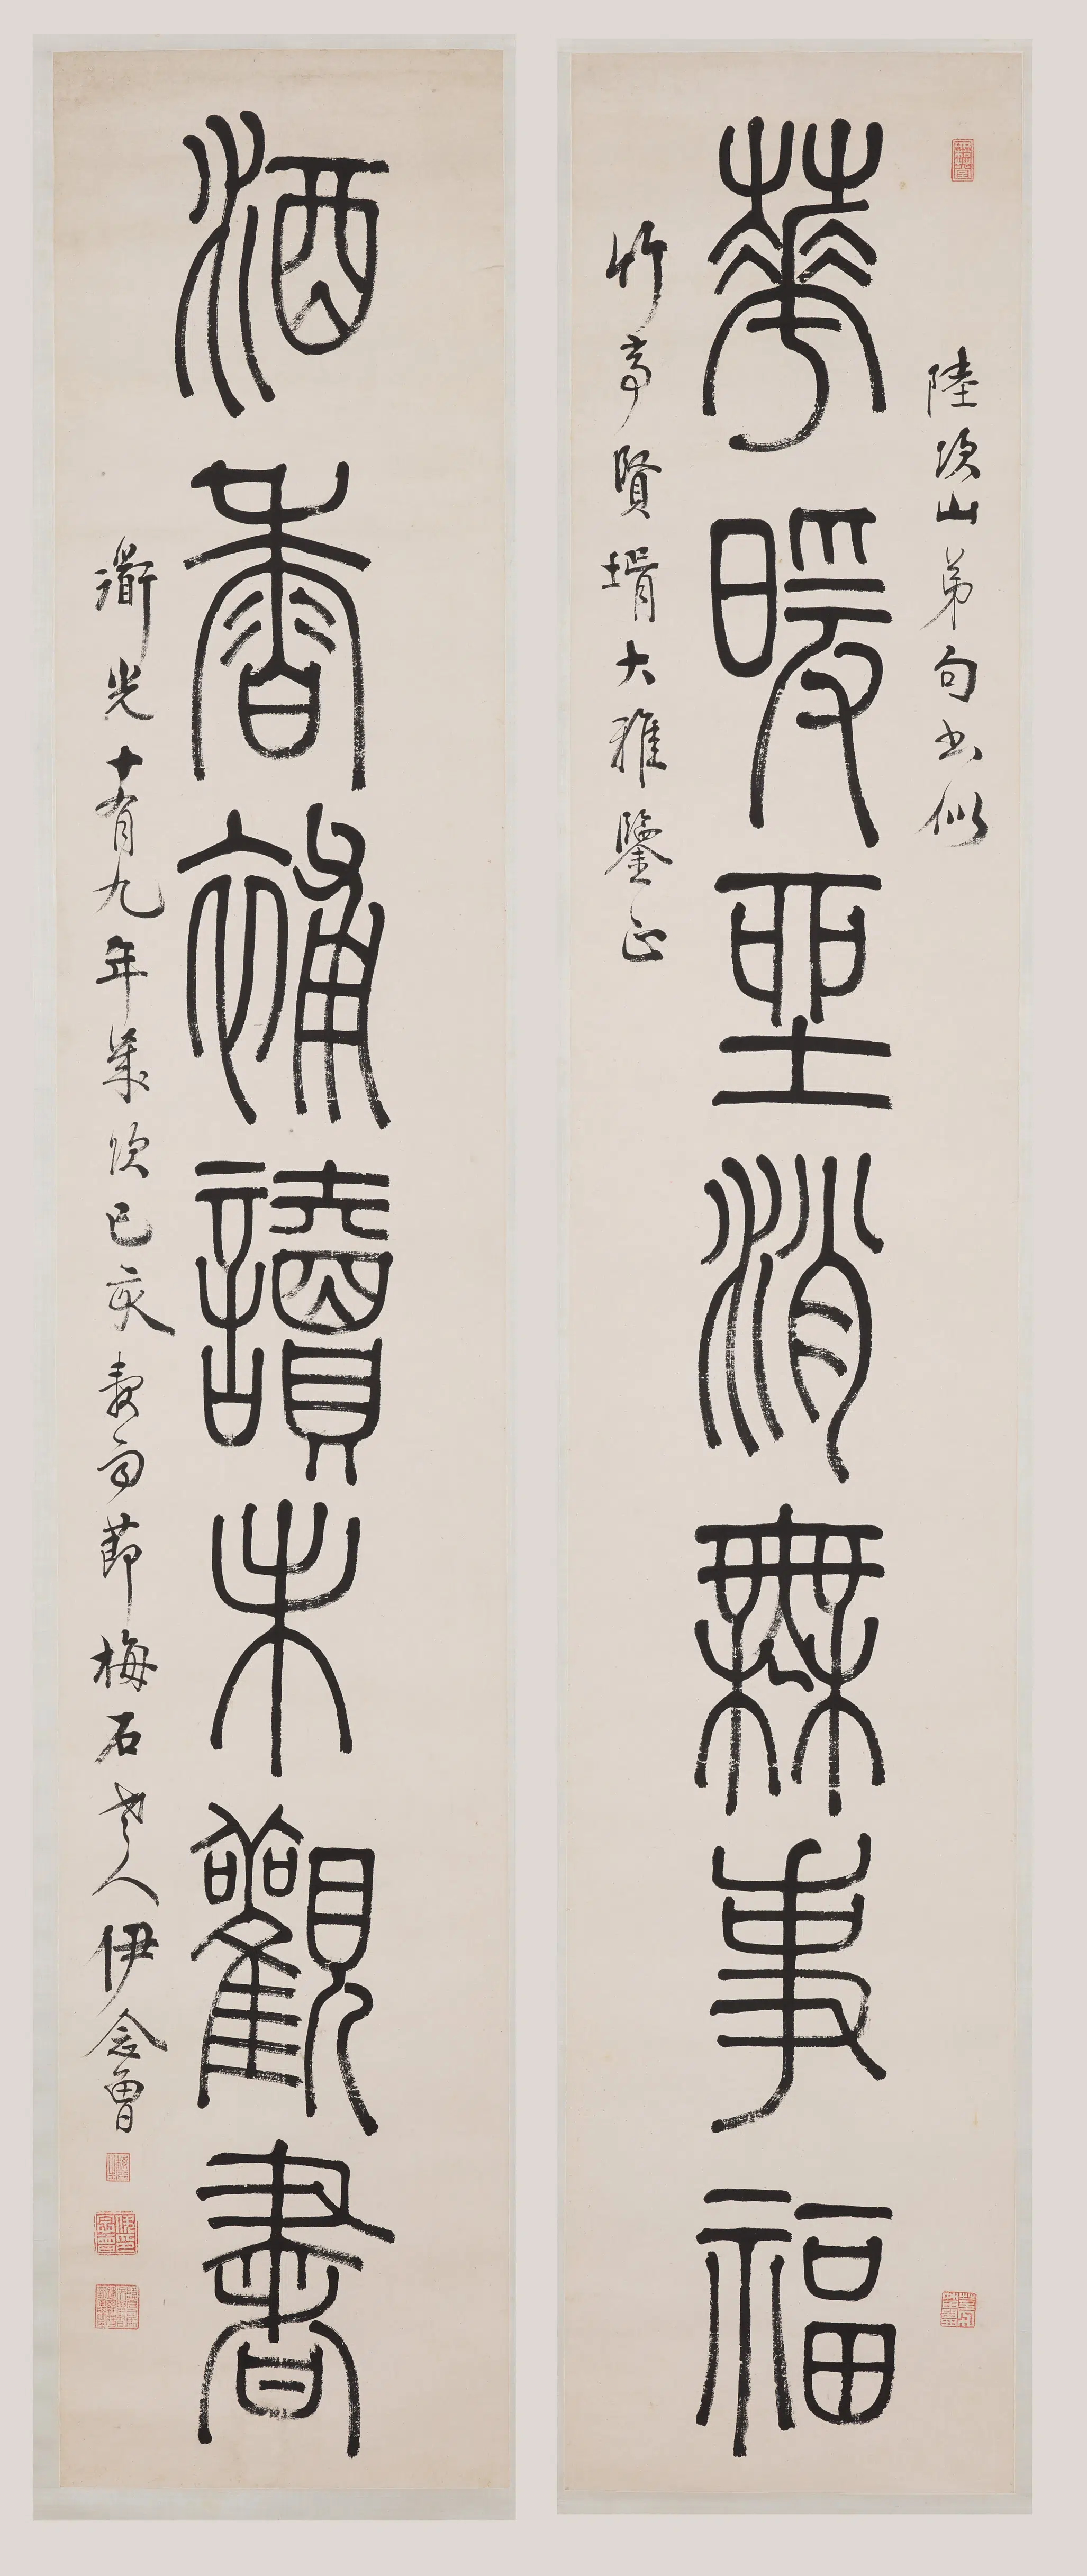 陸次山弟句書似
華暖坐消無事福
竹亭賢壻大雅鑒正
酒香補讀未觀書
衜光十有九年歲次己亥穀雨節梅石老人伊念曾